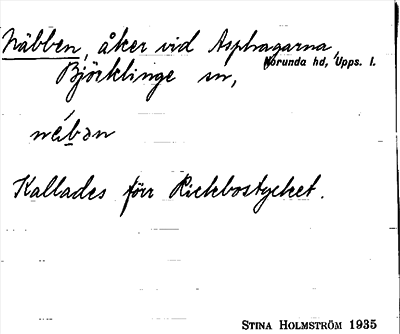 Näbben, åker vid Asphagarna,
Björklinge sn, Norunda hd, Upps. l.
nä́bən
Kallades förr Rickebostycket.
STINA HOLMSTRÖM 1935